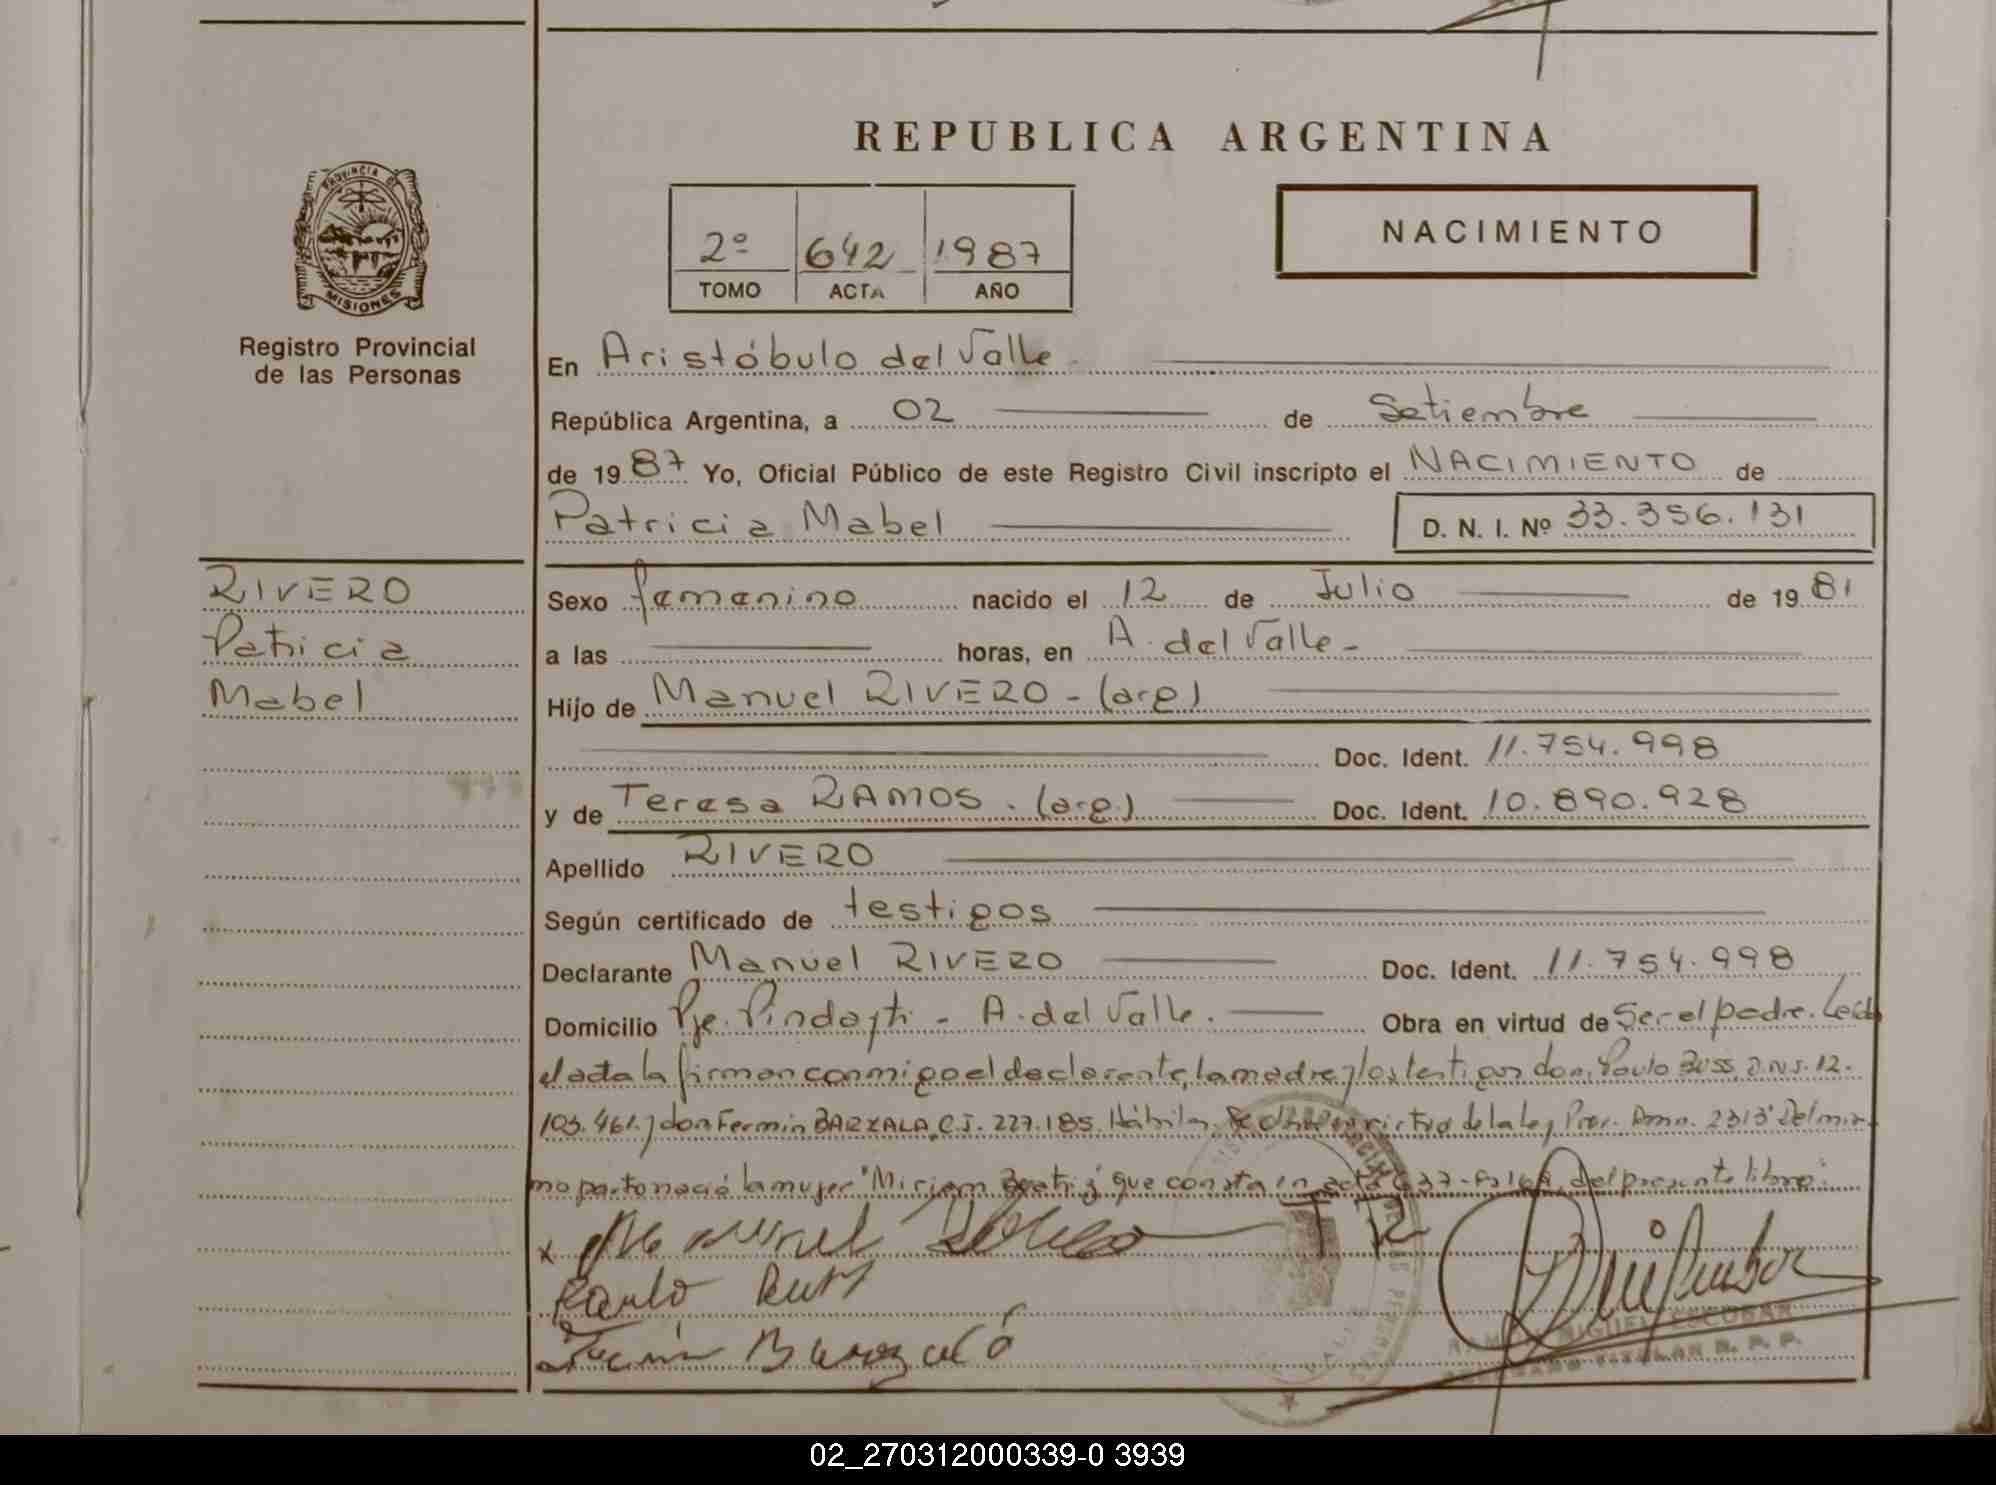 REPUBLICA ARGENTINA
PROVINCIA DE
MISIONES
Registro Provincial
de las Personas
2º 642 1987
TOMO ACTA AÑO
NACIMIENTO
En Aristóbulo del Valle -
República Argentina, a 02 de Setiembre
de 1987 Yo, Oficial Público de este Registro Civil inscripto el NACIMIENTO de
Patricia Mabel D. N. I. Nº 33.356.131
RIVERO
Patricia
Mabel
Sexo femenino nacido el 12 de Julio de 1981
a las horas, en A. del Valle -
Hijo de Manuel RIVERO - (arg)
Doc. Ident. 11.754.998
y de Teresa RAMOS. (arg.) Doc. Ident. 10.890.928
Apellido RIVERO
Según certificado de testigos
Declarante Manuel RIVERO Doc. Ident. 11.754.998
Domicilio Pje. - A. del Valle. Obra en virtud de Ser el padre. Leída
el acta la firman conmigo el declarante, la madre y los testigos don Paulo D.N.I. 12.
103.461 y don Fermin C.I. 227.185. Hábiles. de la ley Prov. 2313 "Del mis-
mo parto nació la mujer "Miriam Beatriz" que consta en acta 637 - del presente libro".
Manuel Rivero T R
Paulo
MIGUEL ESCOBAR
TITULAR R. P. P.
02_270312000339-0 3939